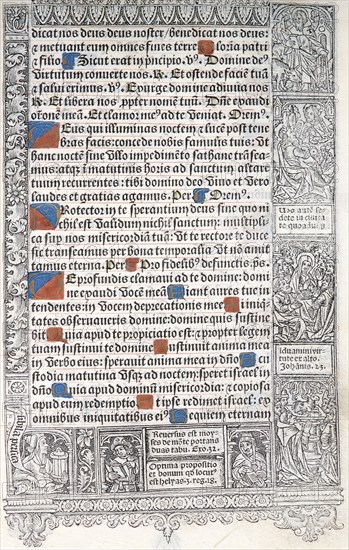 dicat nos deus deus noster / benedicat nos deus:
& metuant eum omnes fines terre Gloria patri
& filio. Sicut erat in principio. v̄. Domine deus
virtutum converte nos. R̄. Et ostende faciē tuā
& salvi erimus. v̄. Exurge domine adiuva nos
R̄. Et libera nos ,ppter nomē tuū. v̄. Dñe exaudi
oř̄onē meā. Et clamor me⁹ ad te veniat. Orem⁹.
Deus qui illuminas noctem & lucē post tene
bras facis: concede nobis famulis tuis: ut
hanc noctē sine ullo impedimēto sathane transea-
mus: atq̄ matutinis horis ad sanctum altare
tuum recurrentes: tibi domino deo vivo et vero
laudes et gratias agamus. Per Orem⁹.
Protector in te sperantium deus sine quo ni
chil est validū nichil sanctum: multipli
ca sup nos misericordiā tuā: ut te rectore te duce
sic transeamus per bona temporalia ut nō amit
tamus eterna. Per Pro fidelib⁹ defunctis. ps.
De profundis clamavi ad te domine: domi
ne exaudi vocē meā Fiant aures tue in
tendentes: in vocem deprecationis mee Si iniqui
tates observaveris domine: domine quis sustine
bit Quia apud te propiciatio est: & propter legem
tuam sustinui te domine Sustinuit anima mea
in verbo eius: speravit anima mea in dño A cu
stodia matutina usq̄ ad noctem: speret israel in
dño Quia apud dominū misericordia: & copiosa
apud eum redemptio Et ipse redimet israel: ex
omnibus iniquitatibus ei⁹ Requiem eternam
Johānis. 23.
Reversus est moy-
ses de mōte portans
duas tabu. Exo. 32.
Optima propositio
et bonum qđ locut⁹
est helyas. 3. reg. 18.